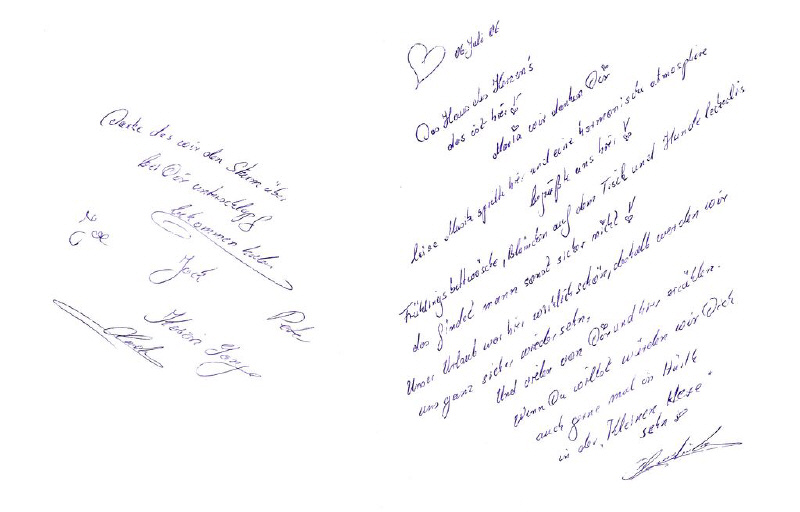 Danke das wir den Sturm über
bei Dir unterschlupf
bekommen haben
Joe
Jack
Peter
06. Juli 06
Das Haus des Herzen's
das ist hier!
Maria wir danken Dir
leise Musik spielte hier und eine harmonische atmosphere
begrüßte uns hier!
Frühlingsbettwäsche, Blümchen auf dem Tisch und Hundeleckerlis
das findet mann sonst sicher nicht!
Unser Urlaub war hier wirklich schön, deshalb werden wir
uns ganz sicher wiedersehn.
Und vielen von Dir und hier erzählen.
Wenn Du willst würden wir Dich
auch gerne mal in Hürth
in der "Kleinen Hexe"
sehn